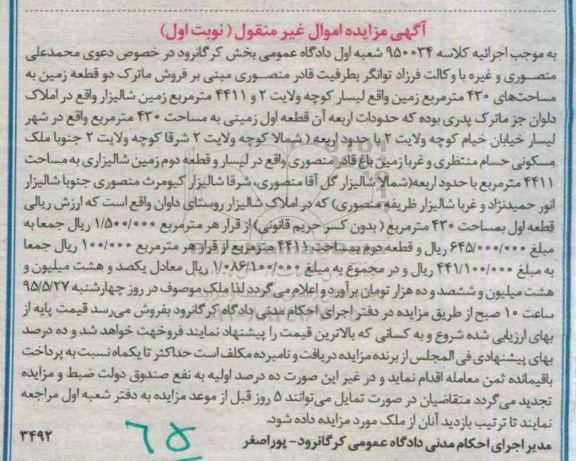 آگهی مزایده اموال غیر منقول ( نوبت اول)
به موجب اجرائیه کلاسه ۹۵۰۰۳۴ شعبه اول دادگاه عمومی بخش کرگانرود در خصوص دعوی محمدعلی
منصوری و غیره با وکالت فرزاد توانگر بطرفیت قادر منصوری مبنی بر فروش ماترک دو قطعه زمین به
مساحت‌های ۴۳۰ مترمربع زمین واقع لیسار کوچه ولایت ۲ و ۴۴۱۱ مترمربع زمین شالیزار واقع در املاک
دلوان جز ماترک پدری بوده که حدودات اربعه آن قطعه اول زمینی به مساحت ۴۳۰ مترمربع واقع در شهر
لیسار خیابان خیام کوچه ولایت ۲ با حدود اربعه ( شمالا کوچه ولایت ۲ شرقا کوچه ولایت ۲ جنوبا ملک
مسکونی حسام منتظری و غربا زمین باغ قادر منصوری واقع در لیسار و قطعه دوم زمین شالیزاری به مساحت
۴۴۱۱ مترمربع با حدود اربعه(شمالا شالیزار گل آقا منصوری، شرقا شالیزار کیومرث منصوری جنوبا شالیزار
انور حمیدنژاد و غربا شالیزار ظریفه منصوری) که در املاک شالیزار روستای داوان واقع است که ارزش ریالی
قطعه اول بمساحت ۴۳۰ مترمربع ( بدون کسر حریم قانونی) از قرار هر مترمربع ۱/۵۰۰/۰۰۰ ریال جمعا به
مبلغ ۶۴۵/۰۰۰/۰۰۰ ریال و قطعه دوم بمساحت ۴۴۱۱ مترمربع از قرار هر مترمربع ۱۰۰/۰۰۰ ریال جمعا
به مبلغ ۴۴۱/۱۰۰/۰۰۰ ریال و در مجموع به مبلغ ۱/۰۸۶/۱۰۰/۰۰۰ ریال معادل یکصد و هشت میلیون و
هشت میلیون و ششصد و ده هزار تومان برآورد و اعلام می‌گردد لذا ملک موصوف در روز چهارشنبه ۹۵/۵/۲۷
ساعت ۱۰ صبح از طریق مزایده در دفتر اجرای احکام مدنی دادگاه کرگانرود بفروش می‌رسد قیمت پایه از
بهای ارزیابی شده شروع و به کسانی که بالاترین قیمت را پیشنهاد نمایند فروخهت خواهد شد و ده درصد
بهای پیشنهادی فی المجلس از برنده مزایده دریافت و نامبرده مکلف است حداکثر تا یکماه نسبت به پرداخت
باقیمانده ثمن معامله اقدام نماید و در غیر این صورت ده درصد اولیه به نفع صندوق دولت ضبط و مزایده
تجدید می‌گردد متقاضیان در صورت تمایل می‌توانند ۵ روز قبل از موعد مزایده به دفتر شعبه اول مراجعه
نمایند تا ترتیب بازدید آنان از ملک مورد مزایده داده شود.
مدیر اجرای احکام مدنی دادگاه عمومی کرگانرود- پوراصغر
۳۴۹۲
۶۵